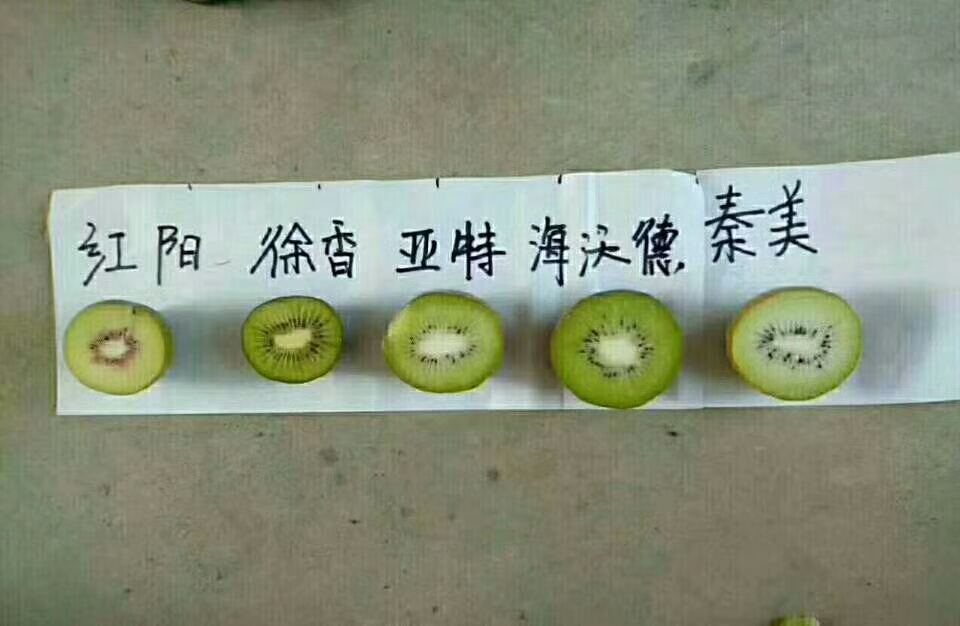 红阳 徐香 亚特 海沃德 秦美